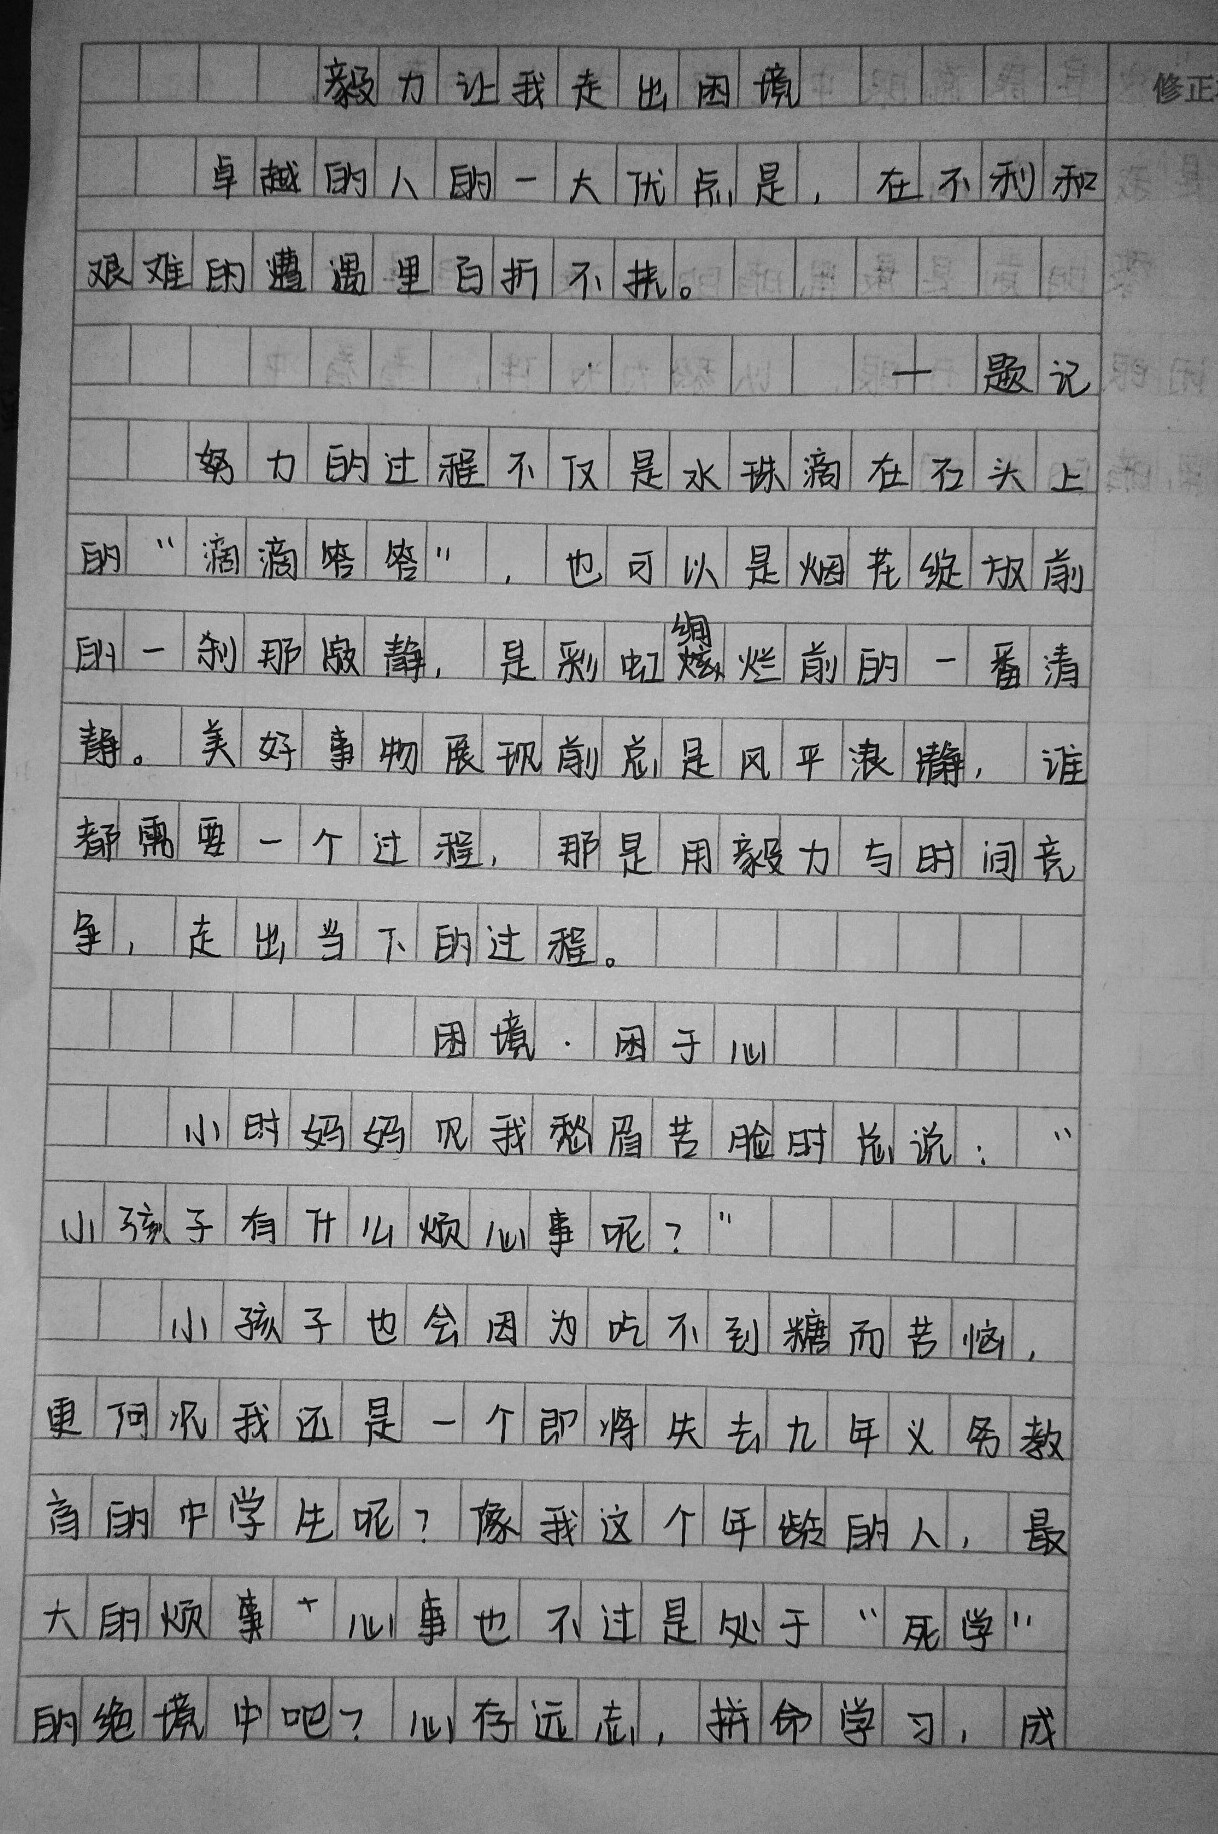 毅力让我走出困境
修正
卓越的人的一大优点是，在不利和
艰难的遭遇里百折不挠。
—题记
努力的过程不仅是水珠滴在石头上
的“滴滴答答”，也可以是烟花绽放前
的一刹那寂静，是彩虹绚烂前的一番清
静。美好事物展现前总是风平浪静，谁
都需要一个过程，那是用毅力与时间竞
争，走出当下的过程。
困境·困于心
小时妈妈见我愁眉苦脸时总说：“
小孩子有什么烦心事呢？”
小孩子也会因为吃不到糖而苦恼，
更何况我还是一个即将失去九年义务教
育的中学生呢？像我这个年龄的人，最
大的烦事+心事也不过是处于“死学”
的绝境中吧？心存远志，拼命学习，成